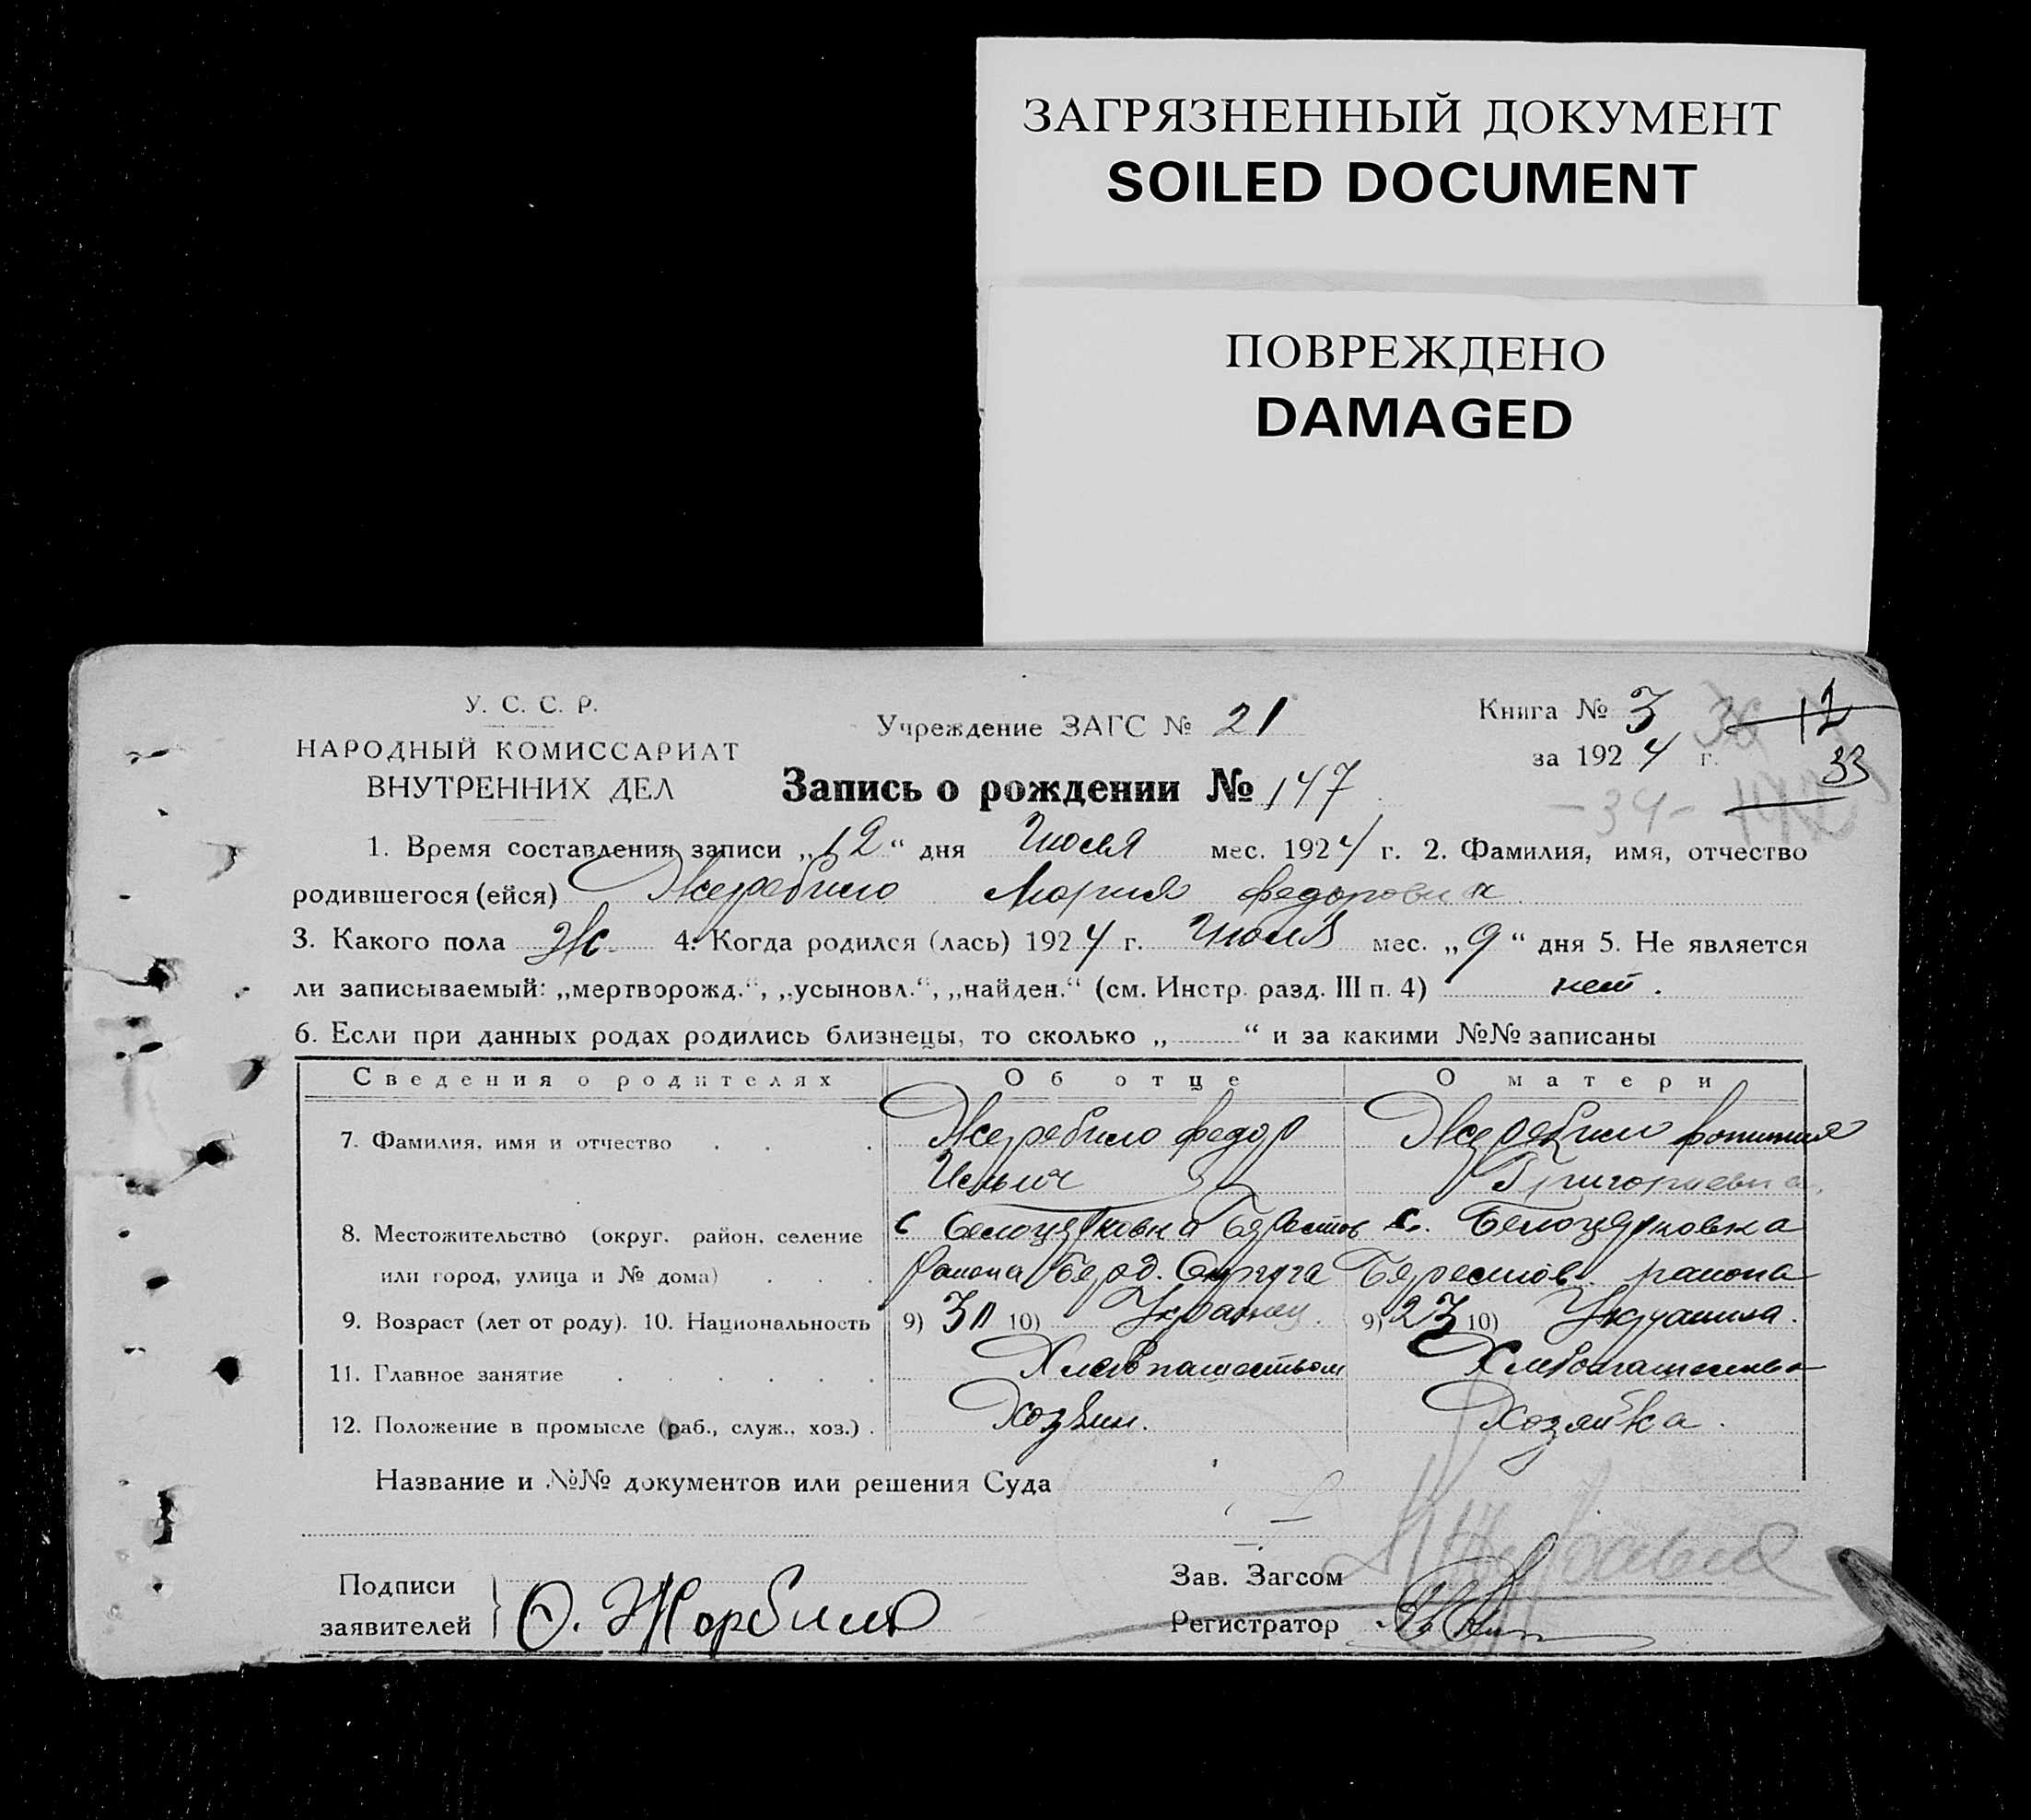 ЗАГРЯЗНЕННЫЙ ДОКУМЕНТ
SOILED DOCUMENT
ПОВРЕЖДЕНО
DAMAGED
У. С. С. Р.
НАРОДНЫЙ КОМИССАРИАТ
ВНУТРЕННИХ ДЕЛ
Учреждение ЗАГС № 21
Книга № 3
12
за 1924 г.
33
-34-
Запись о рождении № 147
1. Время составления записи „12“ дня Июля мес. 1924 г. 2. Фамилия, имя, отчество
родившегося (ейся) Жеребило Мария Федоровна
3. Какого пола Ж. 4. Когда родился (лась) 1924 г. Июля мес. „9“ дня 5. Не является
ли записываемый: „мертворожд.“, „усыновл.“, „найден.“ (см. Инстр. разд. III п. 4) нет.
6. Если при данных родах родились близнецы, то сколько „ “ и за какими №№ записаны
Сведения о родителях Об отце О матери
7. Фамилия, имя и отчество Жеребило Федор Жеребило
Ильич Григориевна
8. Местожительство (округ. район. селение с Белоцерковка Берестов с. Белоцерковка
или город, улица и № дома) района Берд. Округа Берестов. района
9. Возраст (лет от роду). 10. Национальность 9) 30 10) Украинец. 9) 23 10)
11. Главное занятие Хлебопашеством Хлебопашество
12. Положение в промысле (раб., служ., хоз.) Хозяин. Хозяйка.
Название и №№ документов или решения Суда
Подписи
заявителей
Зав. Загсом
Регистратор